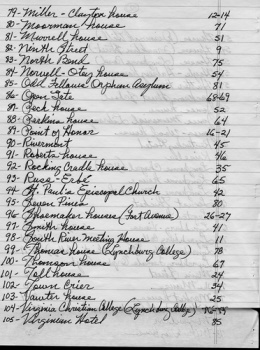 79- Miller - Claytor house 12-14
80- Moorman house 71
81- Murrell house 51
82- Ninth Street 9
83- North Bend 75
84- Norvell-Otey house 54
85- Odd Fellows Orphan Asylum 81
86- Open Gate 68-69
87- Peck house 52
88- Perkins house 64
89- Point of Honor 16-21
90- Rivermont 45
91- Roberts house 46
92- Rocking Cradle house 35
93- 65
94- St. Paul's Episcopal Church 42
95- Seven Pines 80
96- Shoemaker house (Fort Avenue) 26-27
97- Smith house 41
98- South River Meeting House 11
99- Thomas house (Lynchburg College) 78
100- Thomson house 67
101- Toll house 24
102- Town Crier 34
103- Vawter house 25
104- Virginia Christian College (Lynchburg College)
105- Virginian Hotel 85